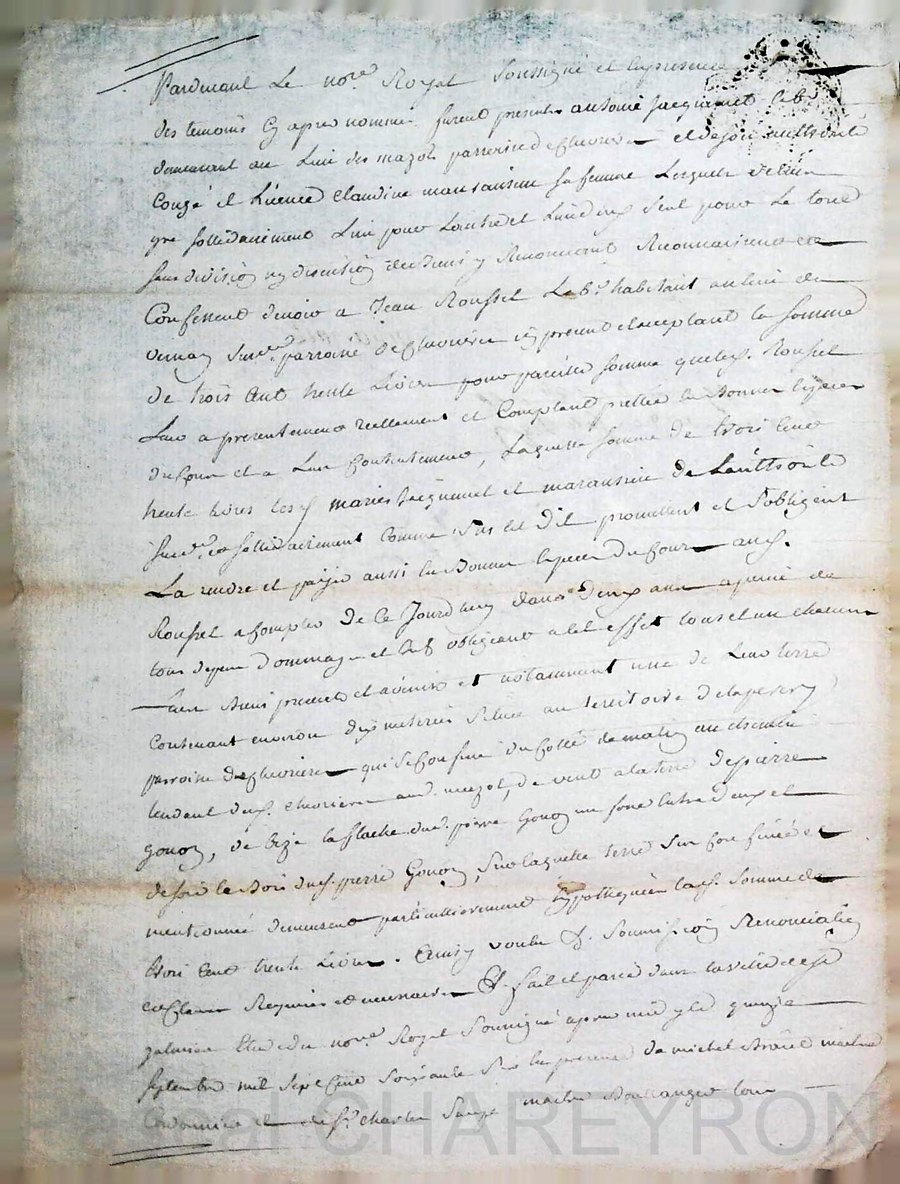 Pardevant Le no.re Royal Soussigné et En presence
des temoins Cy apres nommes furent presents antoine Jacquemet Lab.r
demeurant au Lieu des mazols parroisse de Chevrieres et de Son authorité
Congé et Licence Claudine marsausieu Sa femme Lesquels de Leur
gre sollidairement L'un pour L'autre et L'un deux Seul pour Le tout
sans division ny discution desdiens y Renoncent Reconnoissent et
Confessent devoir a Jean Roussel Lab.r habitant au lieu de
Susd. parroisse de Chevrieres Cy present et acceptant la Somme
de trois Cent trente Livres pour pareille somme que led. Roussel
Leur a presentement reellement et Comptant pretté En Bonnes Especes
du Cours et a Leur Contentement, Laquelle somme de trois Cent
trente livres Les d. maries Jacquemet et marsausieu de L'autthorité
Susd. et sollidairement Comme dit promettent et S'obligent
La rendre et payer aussi En Bonnes Especes du Cours aud.
Roussel a Compter de Ce Jourdhuy dans deux ans a peine de
tous depens Dommages et obligeant a Cet effet tous et un chacun
Leurs Biens presents et avenirs et nottamment une de Leurs terre
Contenant environ dix meterées Située au territoire de
parroise de Chevrieres qui Se Confine du Cotté de matin au chemin
tendant dud. chevrieres aud. mazol, de vent a la terre de pierre
gonon, de bize la dud. pierre Gonon un fossé Entre deux et
de soir le Bois dud. pierre Gonon, Sur laquelle terre Sus Confinée et
mentionnée demeurent particullierement hypothequée lad. Somme de
trois Cent trente Livres. Ainsy voulu &. Soumission Renonciation
et Clauses Requises et necessaires &. fait et passé dans la ville de St
galmier Etude du no.re Royal Soussigné apres midy le quinzie
septembre mil Sept Cent Soixante Six En presence de michel maitre
Cordonnier et de S.r Charles maitre Boullanger tous
Pascal CHAREYRON